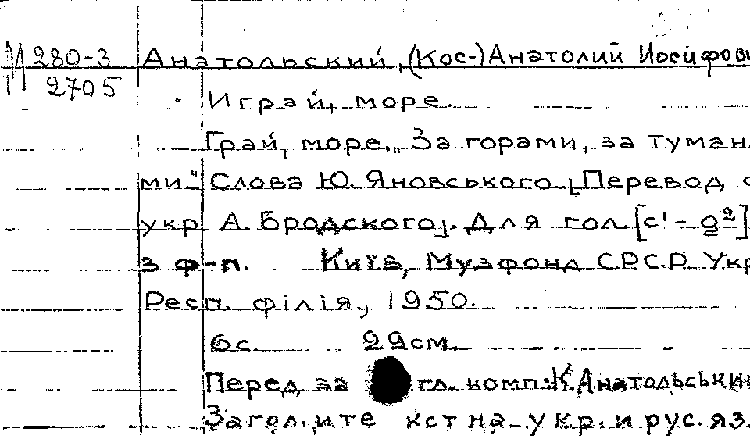 М 280-3 Анатольский, (Кос-) Анатолий Иосифов
2705 Играй, море.
Грай, море. „За горами, за туман
ми“ Слова Ю. Яновського [Перевод с
укр А. Бродского]. Для гол [с¹-g²]
з ф-п. Київ, Музфонд СРСР Укр
Респ. філія, 1950.
6с. 29см.
Перед за гл. комп: К. Анатольськи
Загол. и те кст на укр. и рус. яз.